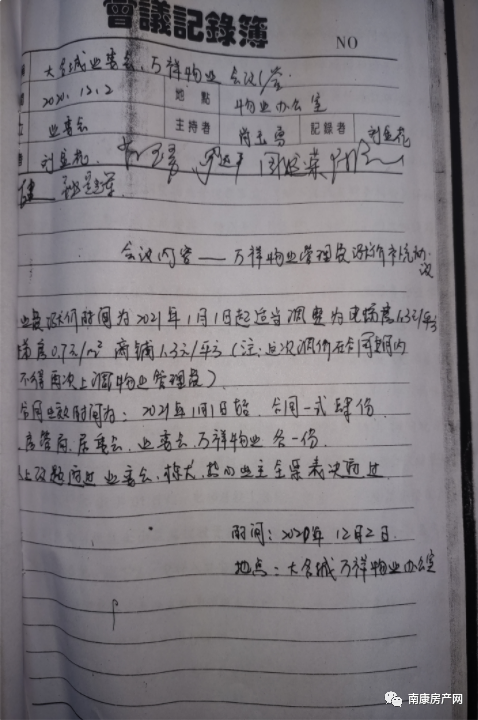 會議記錄簿
NO
大名城业委会、万祥物业会议签
2020.12.2 地點 物业办公室
业委会 主持者 肖玉勇 記錄者 刘金花
刘金花
会议内容——万祥物业管理费涨价市洗动议
业费涨价时间为2021年1月1日起适当调整为电梯房1.3元/平方
梯房0.7元/m² 商铺1.3元/平方(注:此次调价在合同期内
不得再次上调物业管理费)
合同生效时间为:2021年1月1日始 合同一式肆份
房管局、居委会、业委会、万祥物业各一份
以上议题通过业委会、栋长、热心业主全票表决通过
时间:2020年12月2日
地点:大名城万祥物业办公室
南康房产网